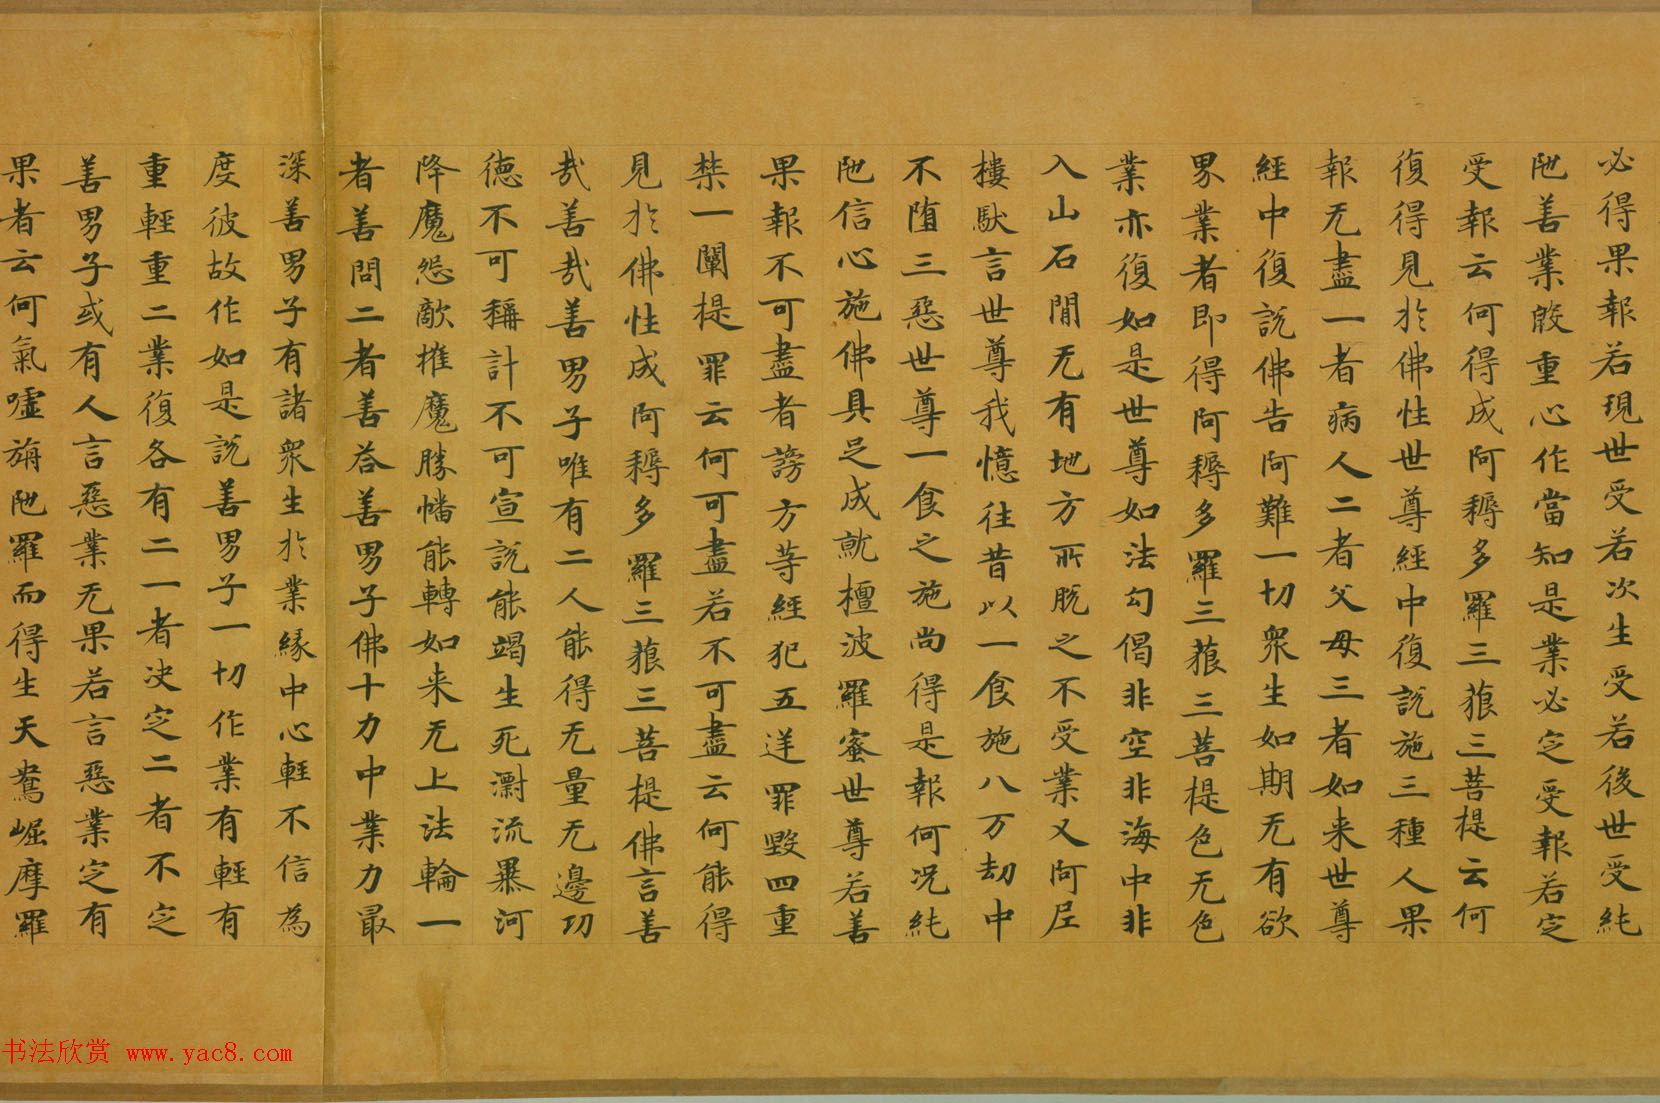 必得果報若現世受若次生受若後世受純
陁善業慇重心作當知是業必定受報若定
受報云何得成阿耨多羅三藐三菩提云何
復得見於佛性世尊經中復說施三種人果
報无盡一者病人二者父母三者如来世尊
經中復說佛告阿難一切衆生如期无有欲
界業者即得阿耨多羅三藐三菩提色无色
業亦復如是世尊如法勾偈非空非海中非
入山石閒无有地方所脱之不受業又阿尼
樓馱言世尊我憶往昔以一食施八万劫中
不堕三惡世尊一食之施尚得是報何况純
陁信心施佛具足成就檀波羅蜜世尊若善
果報不可盡者謗方等經犯五逆罪毀四重
禁一闡提罪云何可盡若不可盡云何能得
見於佛性成阿耨多羅三藐三菩提佛言善
哉善哉善男子唯有二人能得无量无邊功
德不可稱計不可宣說能竭生死瀾流暴河
降魔怨敵摧魔勝幡能轉如来无上法輪一
者善問二者善荅善男子佛十力中業力最
深善男子有諸衆生於業緣中心輕不信為
度彼故作如是說善男子一切作業有輕有
重輕重二業復各有二一者决定二者不定
善男子或有人言惡業无果若言惡業定有
果者云何氣嘘旃陁羅而得生天鴦崛摩羅
书法欣赏 www.yac8.com